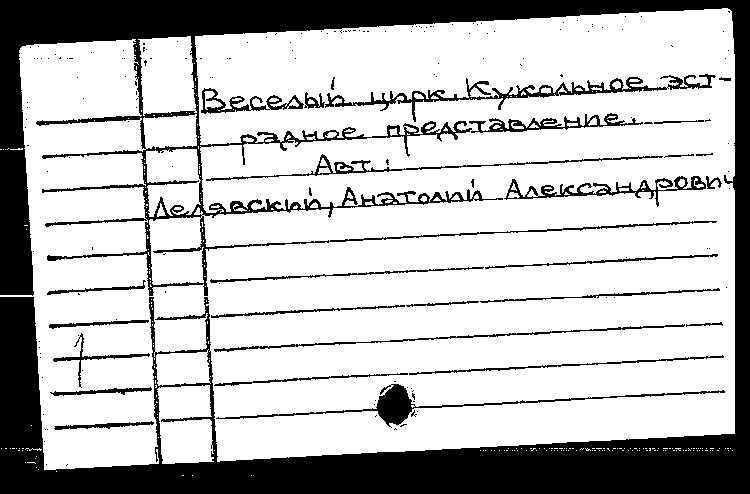 Веселый цирк. Кукольное эст-
радное представление.
Авт.:
Делявский, Анатолий Александрович